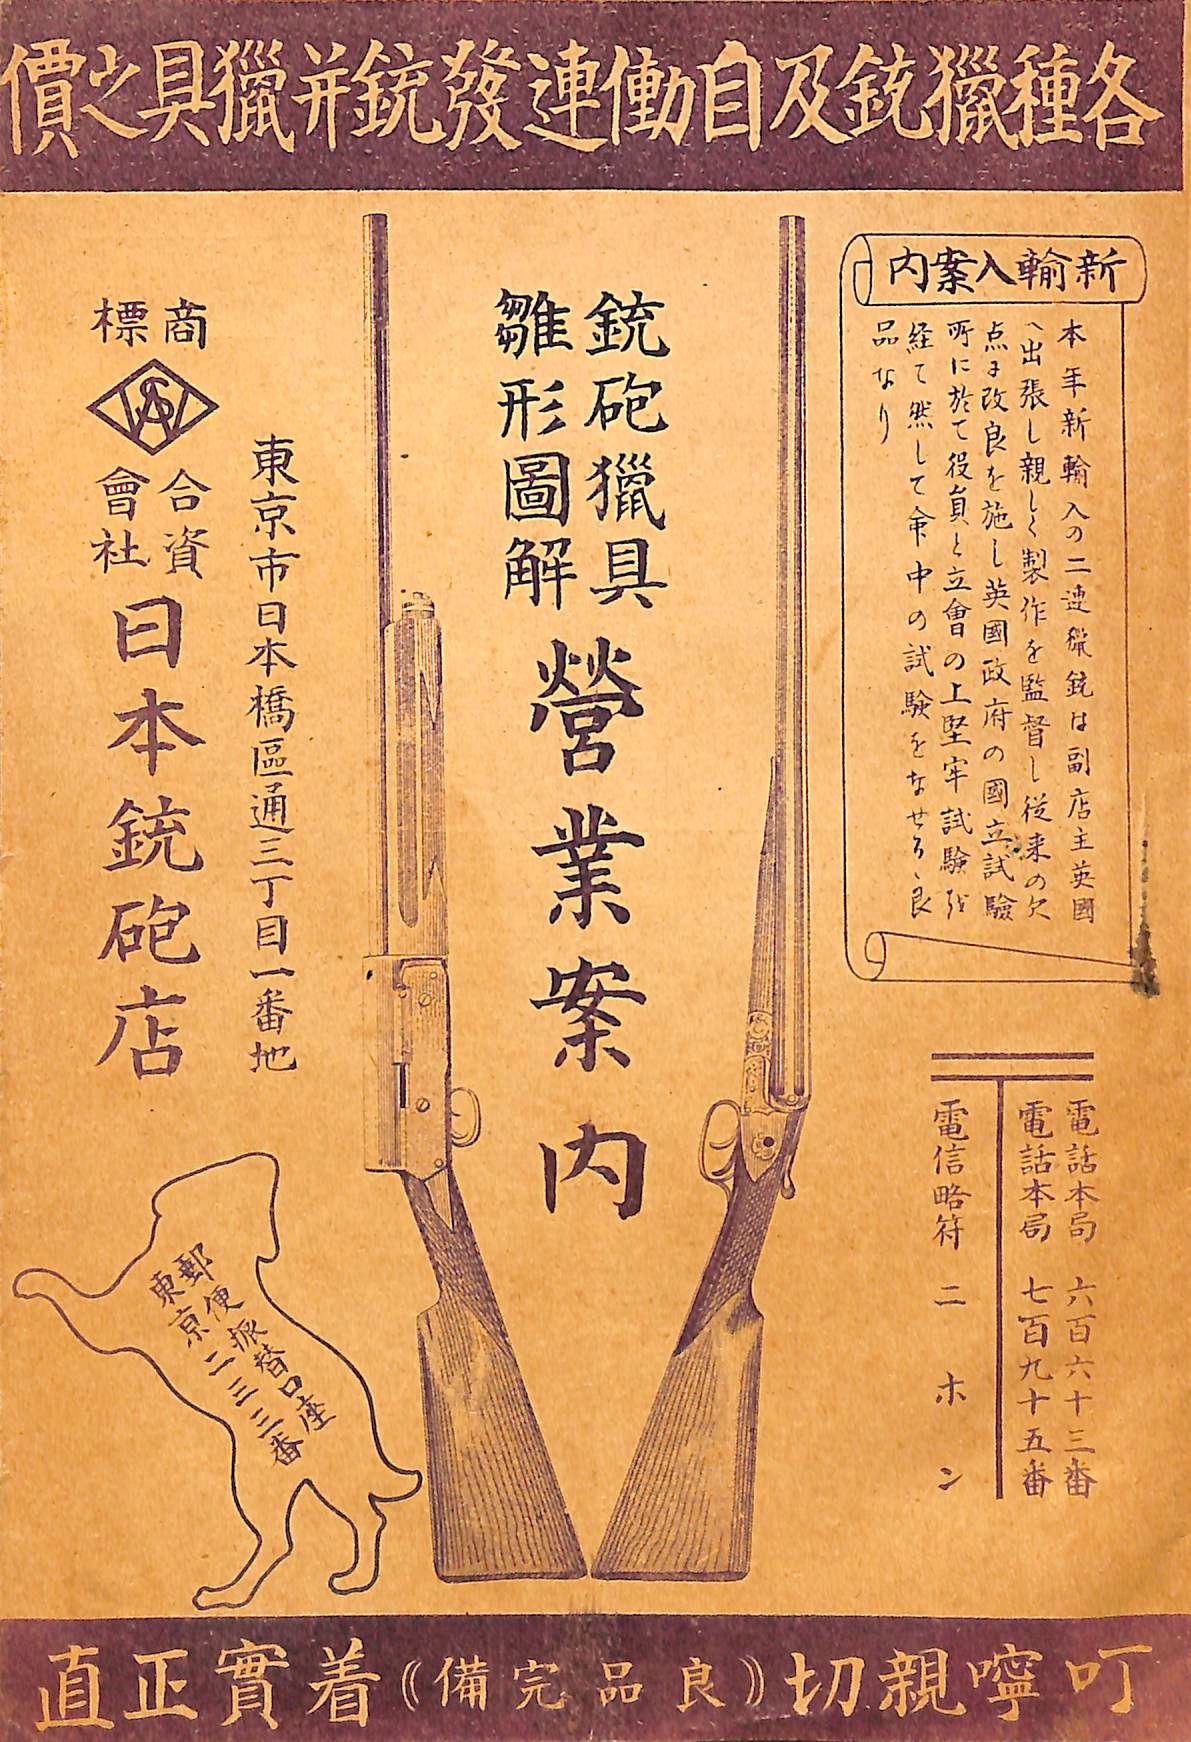 各種獵銃及自働連發銃并獵具之價
新輸入案内
本年新輸入の二連獵銃は副店主英國
へ出張し親しく製作を監督し従来の欠
点を改良を施し英國政府の國立試驗
所に於て役員と立會の上堅牢試驗を
経て然して命中の試驗をなせる良
品なり
電話本局 六百六十三番
電話本局 七百九十五番
電信略符 ニホン
銃砲獵具
雛形圖解
營業案内
東京市日本橋區通三丁目一番地
商標
SAW
合資
會社
日本銃砲店
郵便振替口座
東京二三三番
叮嚀親切《良品完備》着實正直